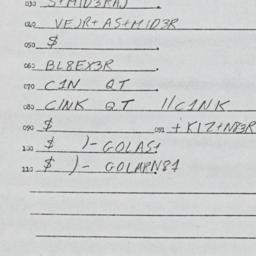 030 S+M1D3RAJ.
040 VEJR+AS+M1D3R
050 $.
060 BL8EX3R
070 C1N QT.
080 C/NK QT //C1NK
090 $ 091 +K1Z+N83R
100 $ )-GOLAS1
110 $ )-GOLAPN81